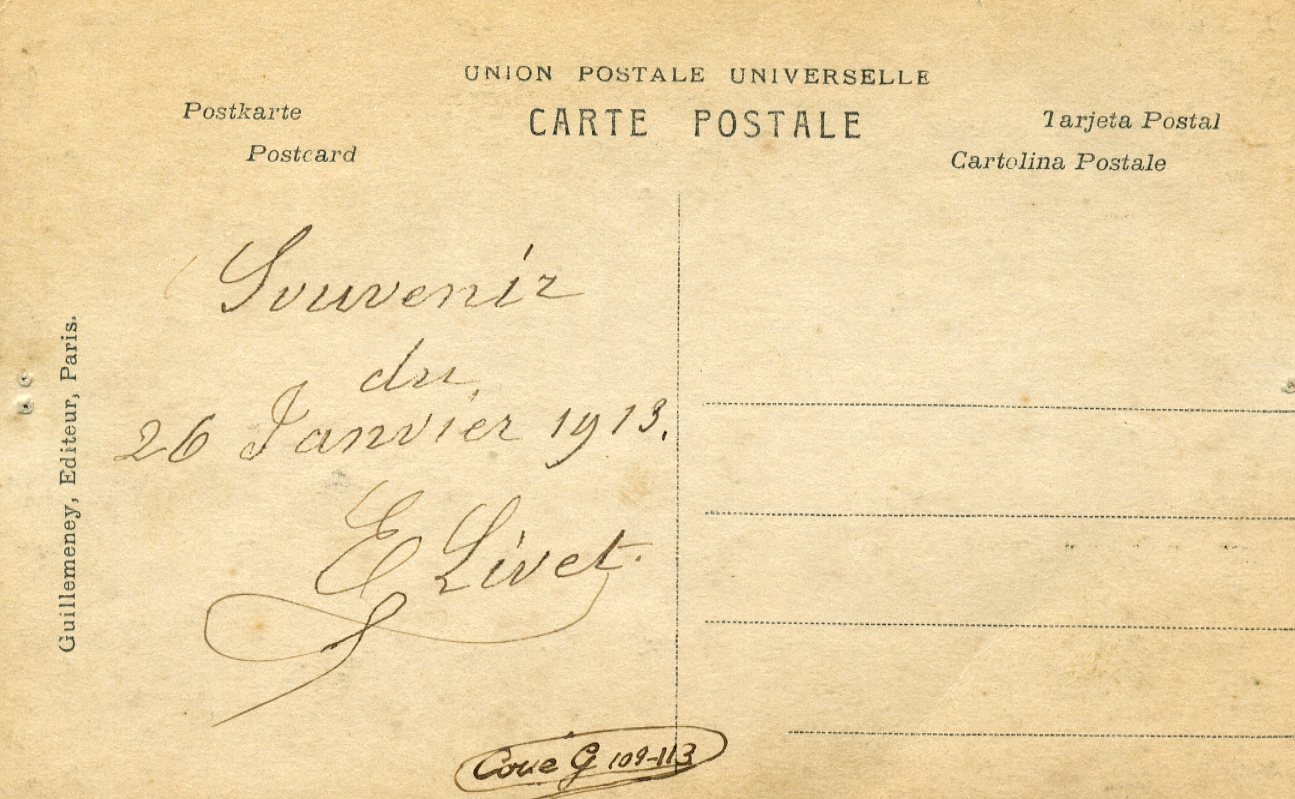 UNION POSTALE UNIVERSELLE
Postkarte
CARTE POSTALE
Tarjeta Postal
Postcard
Cartolina Postale
Souvenir
du
26 Janvier 1913.
E Livet.
Guillemeney, Editeur, Paris.
Coue G 109-113